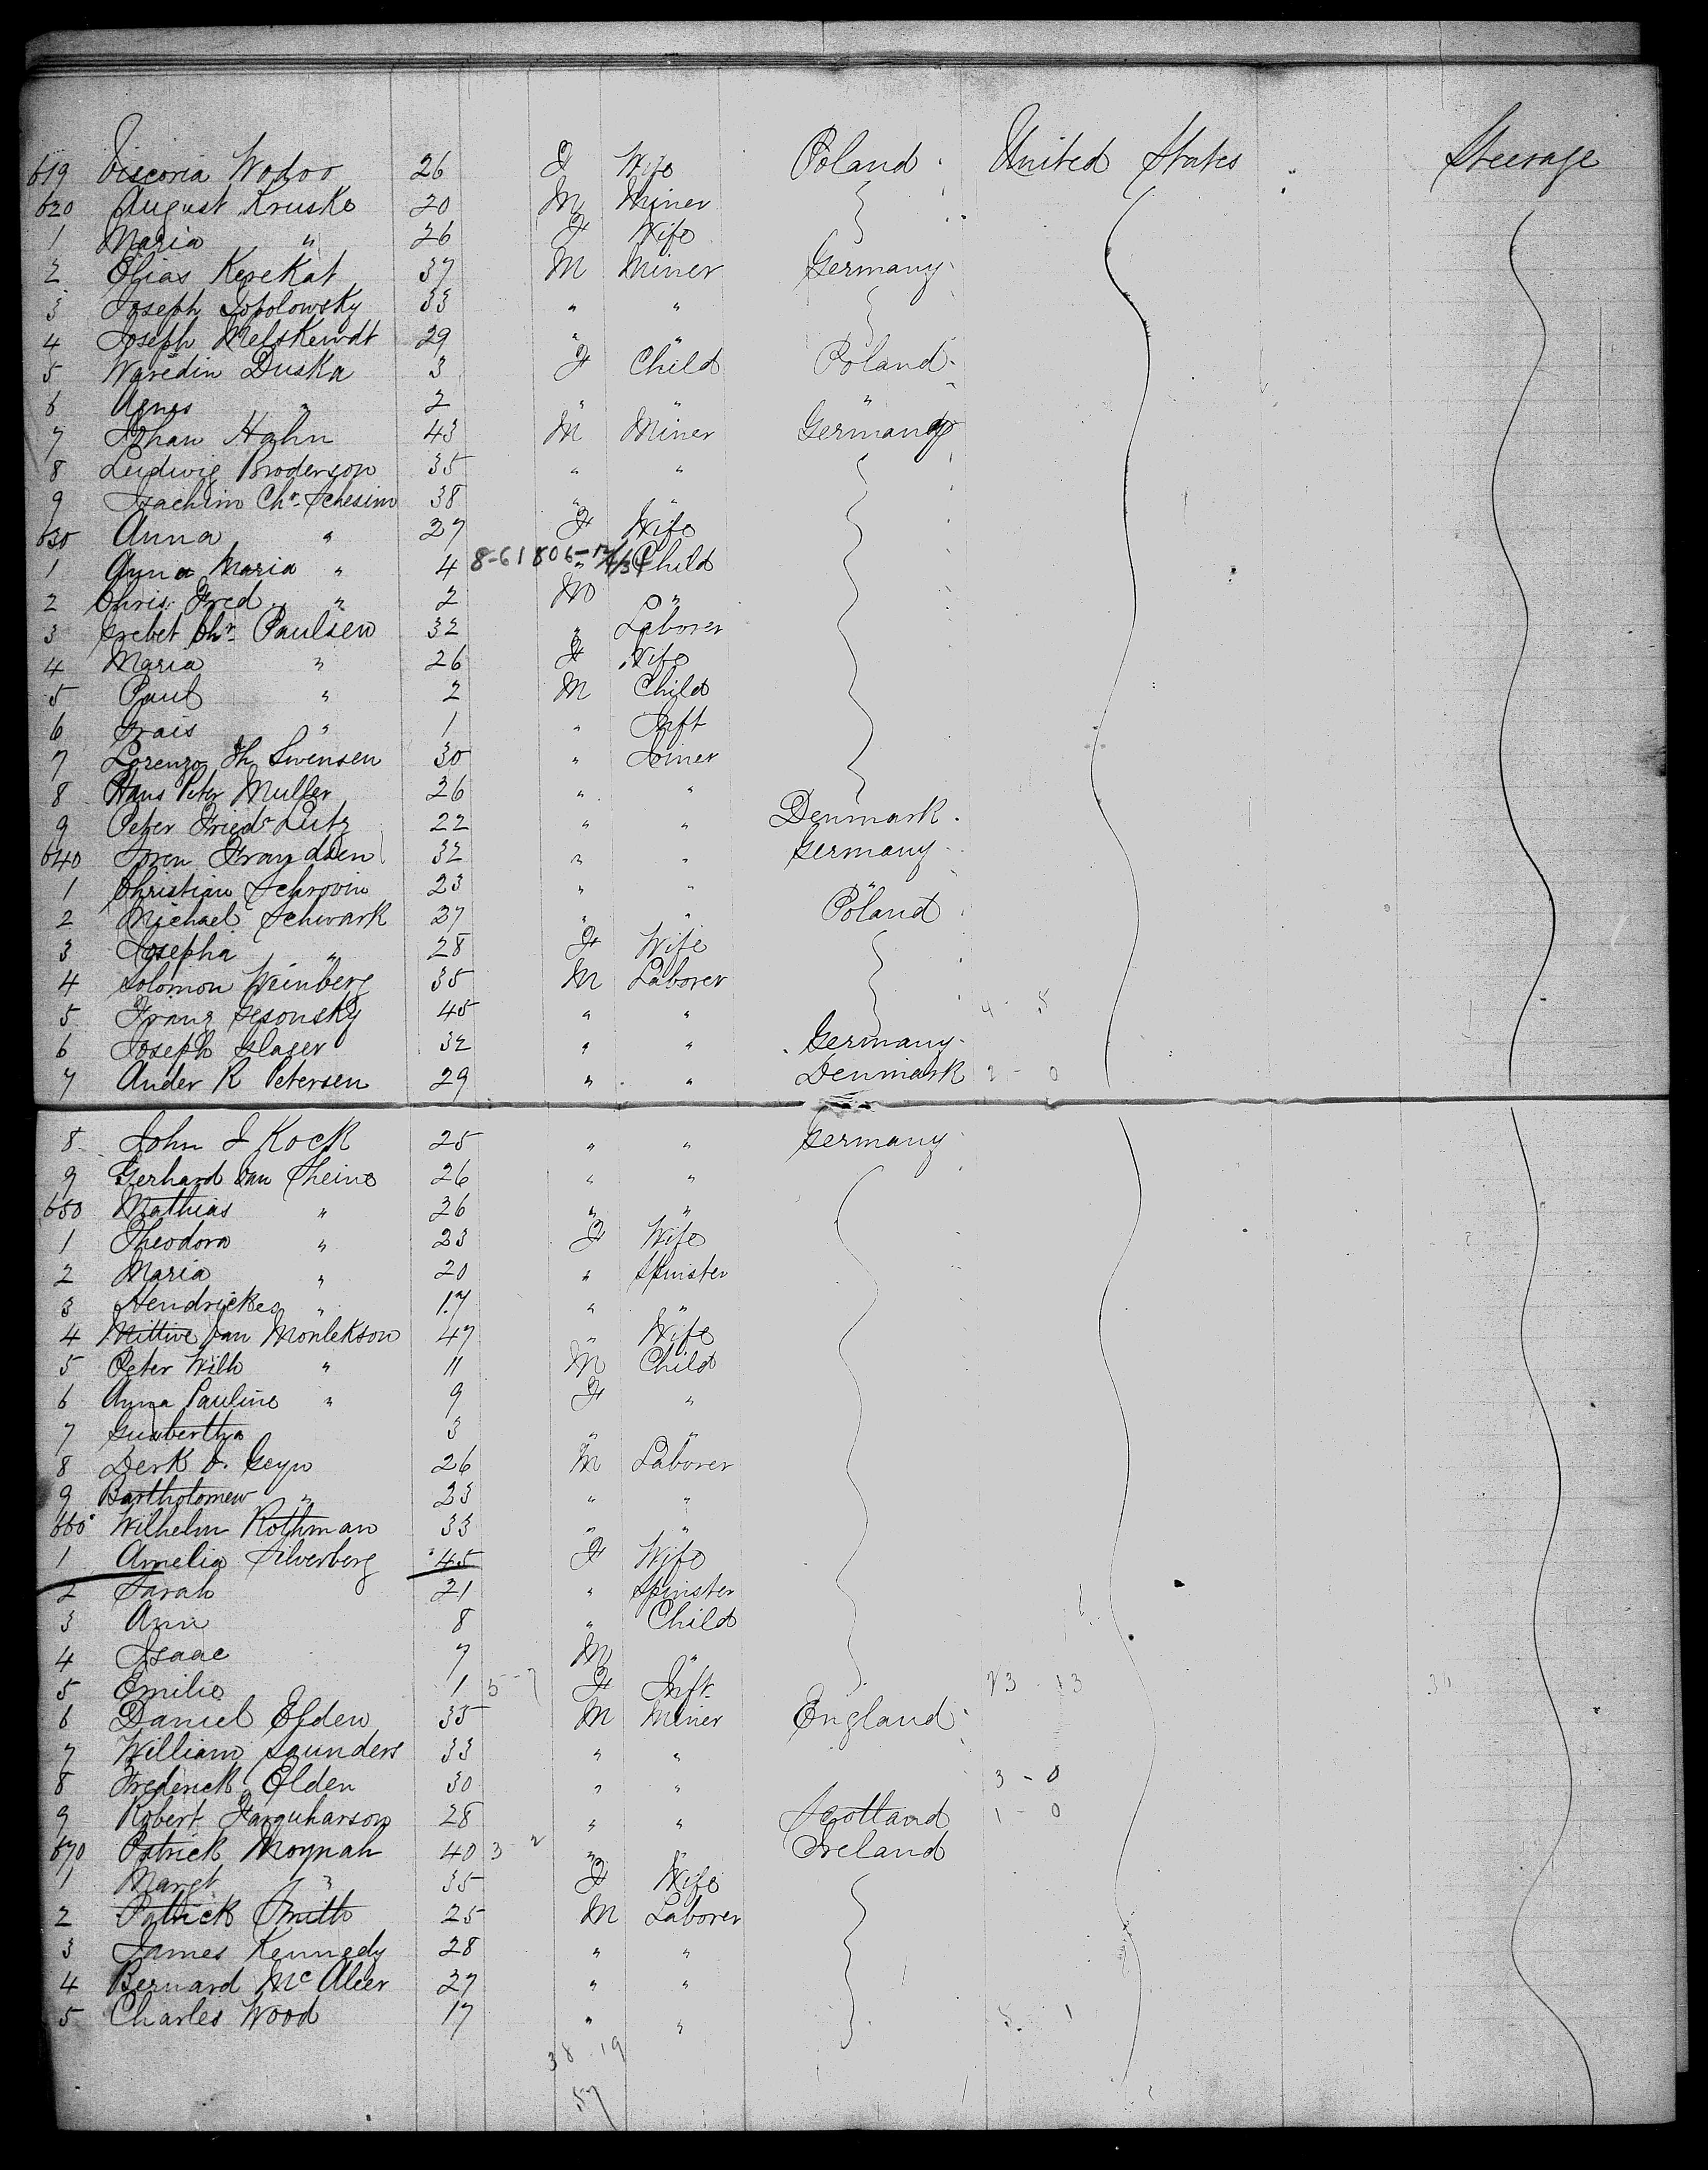 619 Viscoria Wodoo 26 F Wife Poland United States Steerage
620 August Kruske 20 M Miner
1 Maria " 26 F Wife
2 Elias Kerekat 37 M Miner Germany
3 Joseph Sopolowsky 33 " "
4 Joseph 29 " "
5 Waredin Duska 3 F Child Poland
6 Agnes " 2 " " "
7 Johan Hahn 43 M Miner Germany
8 Ludwig Broderson 35 " "
9 Joachim Chr. Schesim 38 " "
630 Anna " 27 F Wife
1 Anna Maria " 4 " Child
2 Chris Fred " 2 M "
3 Chr. Paulsen 32 " Laborer
4 Maria " 26 F Wife
5 Paul " 2 M Child
6 " 1 " Inft
7 Lorenzo Th Swensen 30 " Joiner
8 Hans Peter Muller 26 " "
9 Peter Friedr Lutz 22 " " Denmark
640 Soren 32 " " Germany
1 Christian Schrovin 23 " " "
2 Michael Schwark 27 " " Poland
3 Josepha " 28 F Wife
4 Solomon Weinberg 35 M Laborer
5 Franz Sesonsky 45 " "
6 Joseph Glaser 32 " " Germany
7 Ander R Petersen 29 " " Denmark
8 John J Kock 25 " " Germany
9 Gerhard van Theine 26 " "
650 Mathias " 26 " "
1 Theodora " 23 F Wife
2 Maria " 20 " Spinster
3 Hendrickes " 17 " "
4 Mittive van Monlekson 47 " Wife
5 Peter Wilh " 11 M Child
6 Anna Pauline " 9 F "
7 Gusbertha 3 " "
8 Derk v. Geyn 26 M Laborer
9 Bartholomew " 23 " "
660 Wilhelm Rothman 33 " "
1 Amelia Silverberg 45 F Wife
2 Sarah 21 " Spinster
3 Ann 8 " Child
4 Isaac 7 M "
5 Emilie 1 F Inft
6 Daniel Elden 35 M Miner England
7 William Saunders 33 " "
8 Frederick Elden 30 " " 3 - 0
9 Robert Farquharson 28 " " Scotland 1 - 0
670 Patrick Moynah 40 3 - 2 " " Ireland
1 Margt " 35 F Wife
2 Patrick Smith 25 M Laborer
3 James Kennedy 28 " "
4 Bernard McAleer 27 " "
5 Charles Wood 17 " " 5 - 1
38 - 19
57